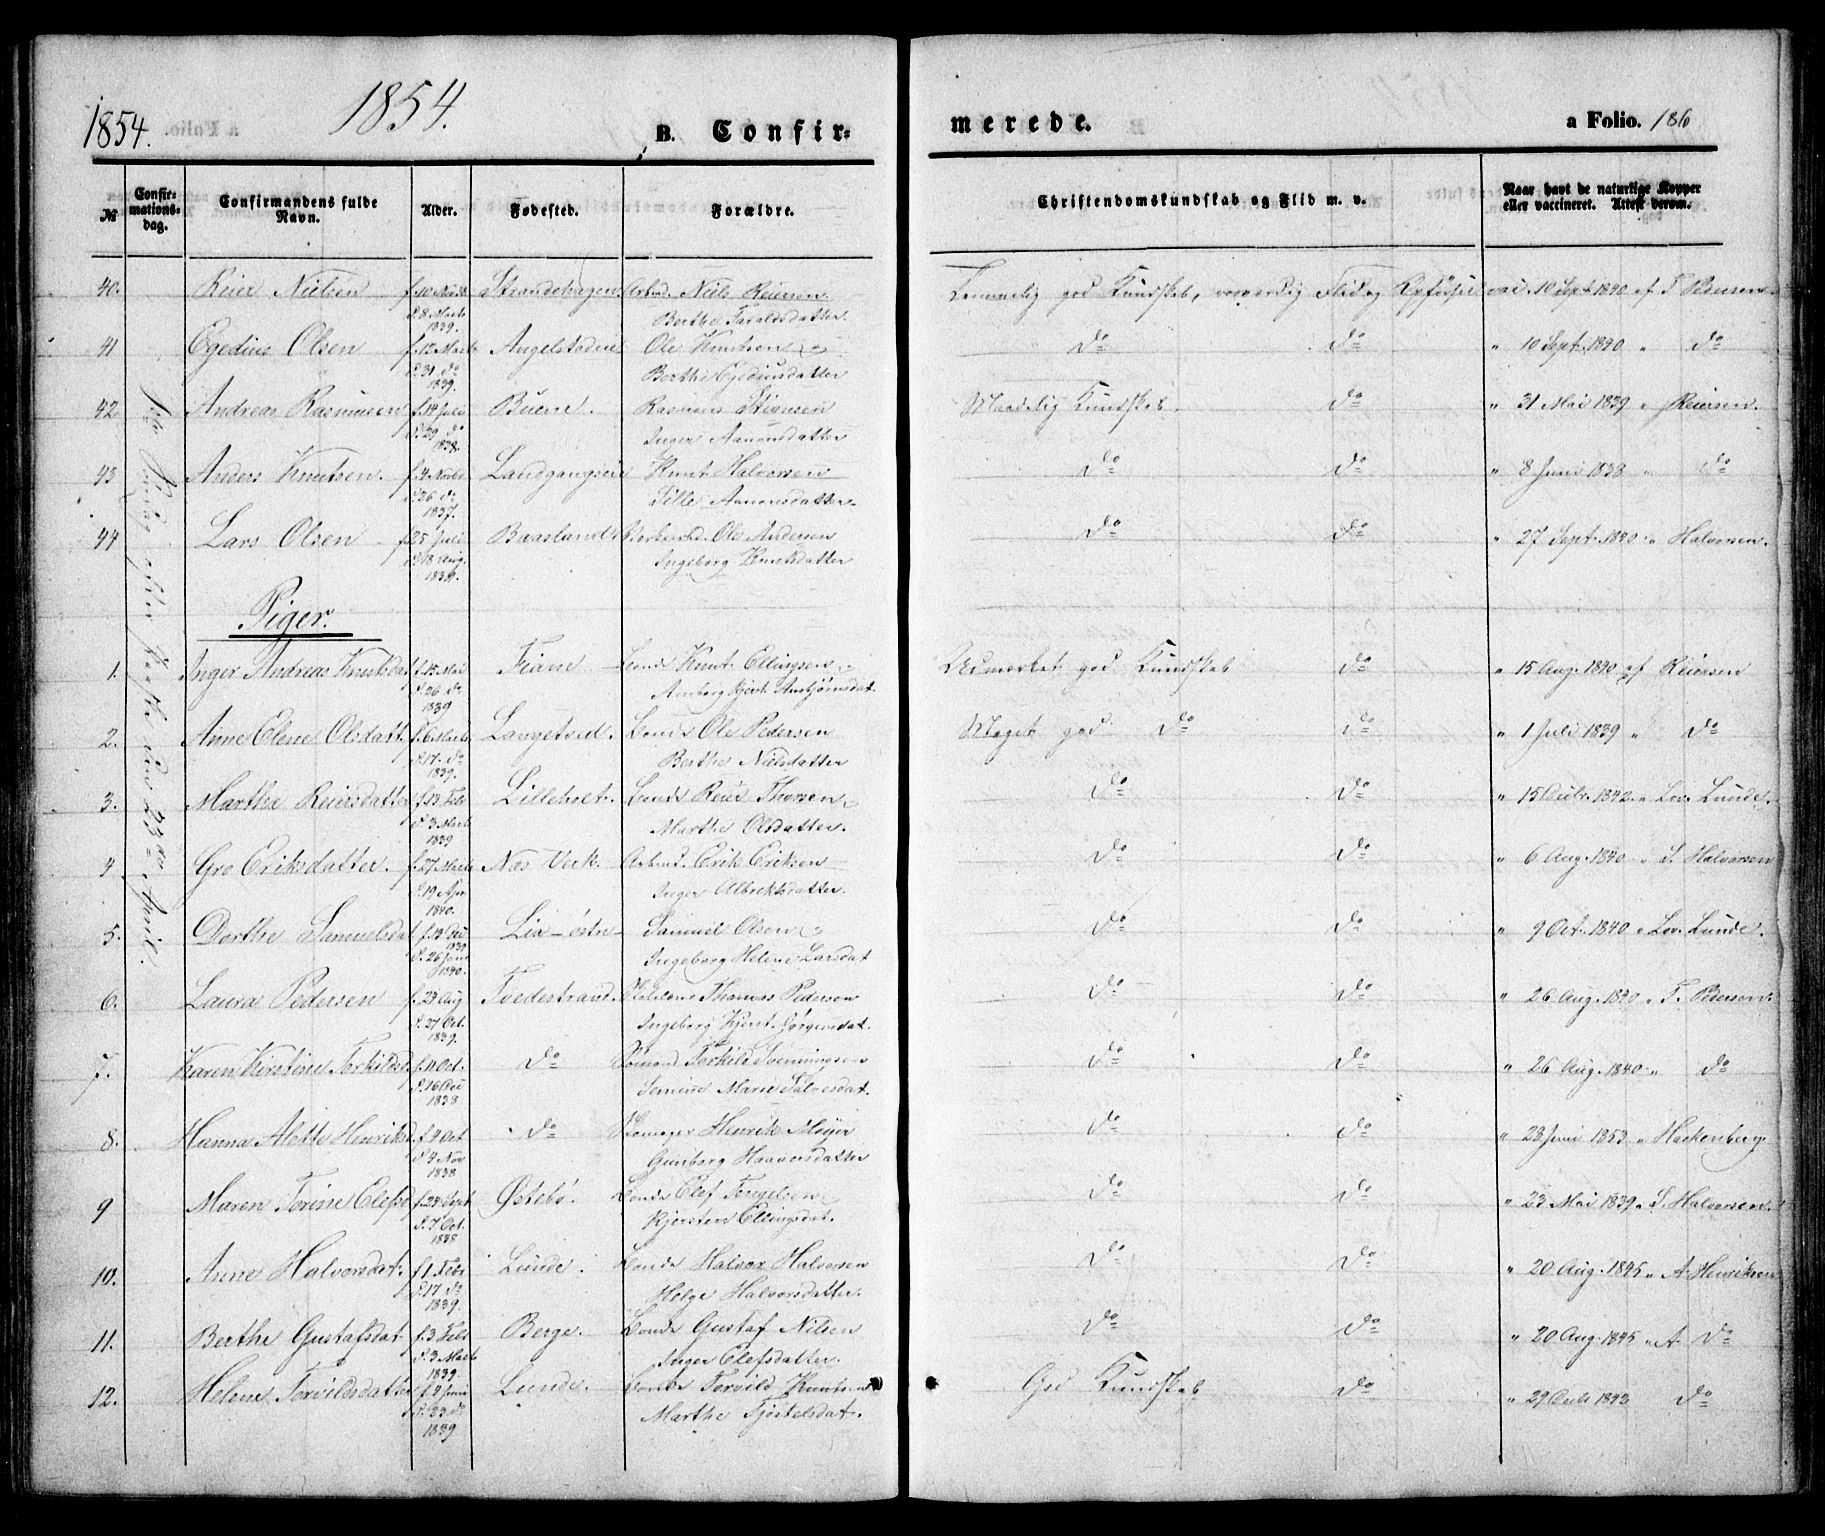 1854.
1854.
B. Confirmerede.
a Folio. 186
№
Confirmationsdag.
Confirmandens fulde Navn.
Alder.
Fødested.
Forældre.
Christendomskundskab og Flid m. v.
Naar havt de naturlige Kopper eller vaccineret. Attest derom.
April.
40. Reier Nielsen f. 10 Strandehagen Arbmd. Niels Reiersen god Kundskab, Flid og vac. 10 Sept. 1840 af T. Pedersen
d. 8 Marts 1839. Berthe Taraldsdatter.
41 Egedius Olsen f. 12 Marts Ole Knutsen do do " 10 Sept. 1840 " do
d. 31 do 1839. Berthe Egediusdatter
42 Andreas Rasmussen f. 14 Juli Buene. Rasmus Maadelig Kundskab. do " 31 Mai 1839 " Reiersen.
d. 29 do 1838. Inger Aanonsdatter
43 Anders Knutsen. f. 4 Knut Halvorsen do do " 8 Juni 1838 " do
d. 26 do 1837. Sille Aanonsdatter
44 Lars Olsen f. 25 Juli Baasland Ole Andersen do do " 27 Sept. 1840 " Halvorsen.
d. 18 Aug. 1839. Ingeborg Knutsdatter
Piger.
1. Inger Andrea Knutsdat f. 15 Mai Fiane Knut Ellingsen Udmærket god Kundskab do " 15 Aug. 1840 af Reiersen
d. 26 do 1839
2. Anne Elene Olsdatt. f. 6 Marts Langetved. Ole Pedersen Meget god do do " 1 Juli 1839 " do
d. 17. do 1839. Berthe Nielsdatter
3. Martha Reiersdatter f. 13 Febr Lilleholt. Reier Thorsen do do " 15 1842 " Lov. Lunde.
d. 3 Marts 1839 Marthe Olsdatter.
4 Gro Eriksdatter. f. 27 Marts Næs Verk. Arbmd. Erik Eriksen do do " 6 Aug. 1840 " S. Halvorsen
d. 19 Apr. 1840. Inger Albrektsdatter.
5. Dorthe Samuelsdat f. 13 Dec 1839 Lia østre Samuel Olsen do do " 9 Oct. 1840 " Lov. Lunde.
d. 26 Juni 1840. Ingeborg Helene Larsdat
6. Laura Pedersen f. 23 Aug Tvedestrand. Thomas Pedersen do do " 26 Aug. 1840 " T. Pedersen.
d. 27 Oct. 1839. Ingeborg Kjerst. Jørgensdat.
7. Karen Kirstine Torkildsd f. 11 Oct. do Torkild Svenningsen do do " 26 Aug. 1840 " do
d. 16 Dec 1838 Marie
8. Hanna Alette Henriksd. f. 4 Oct do Skomager Henrik Meyer do do " 23 Juni 1853 " Hackenberg
d. 4 Nov 1838 Gunborg Haavorsdatter
9 Maren Torine Olefsd f. 24 Sept Østebø. Olef Tengelsen do do " 23 Mai 1839 " S. Halvorsen.
d. 7 Oct. 1838 Kjersten Ellingsdat.
10. Anne Halvorsdat. f. 1 Febr Lunde. Halvor Halvorsen do do " 20 Aug. 1845 " A Henriksen
d. 17 do 1839. Helge Halvorsdatter.
11. Berthe Gustafsdat f. 3 Febr Berge. Gustaf Nilsen do do " 20 Aug. 1845 " A do
d. 3 Marts 1839. Inger Olefsdatter.
12. Helene Torvildsdatter f. 9 Juni Lunde. Torvild Knutsen God Kundskab do " 29 1843 do
d. 23 do 1839 Marthe